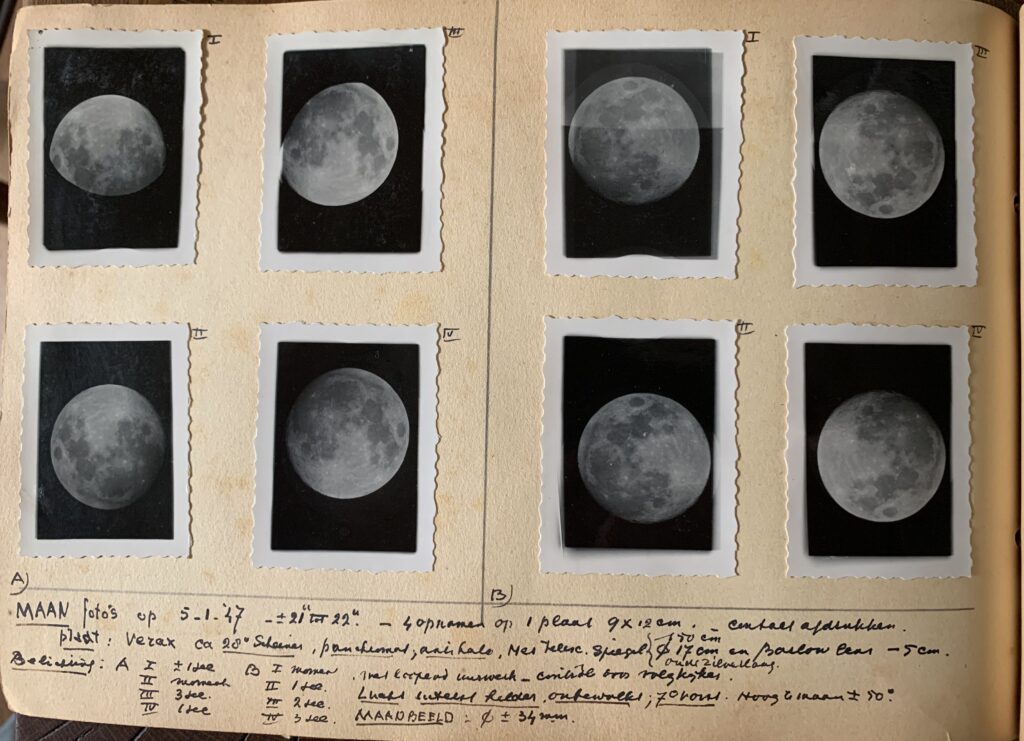 I III I III
II IV II IV
A) B)
MAAN foto's op 5-1-'47 - ± 21ᵘ tot 22ᵘ. - 4 opnamen op 1 plaat 9 x 12 cm. - contact afdrukken.
plaat: Verax ca 28° Scheiner, panchromat, anti halo, Met Telesc. Spiegel { f 50 cm φ 17 cm en Barlow lens - 5 cm.
Belichting: A I ± 1 sec B I moment, met lopend uurwerk - controle door volgkijker.
II moment II 1 sec. Lucht uiterst helder, onbewolkt; 7° vorst. Hoogte maan ± 50°
III 3 sec. III 2 sec.
IV 1 sec IV 3 sec. MAANBEELD: φ ± 34 mm.